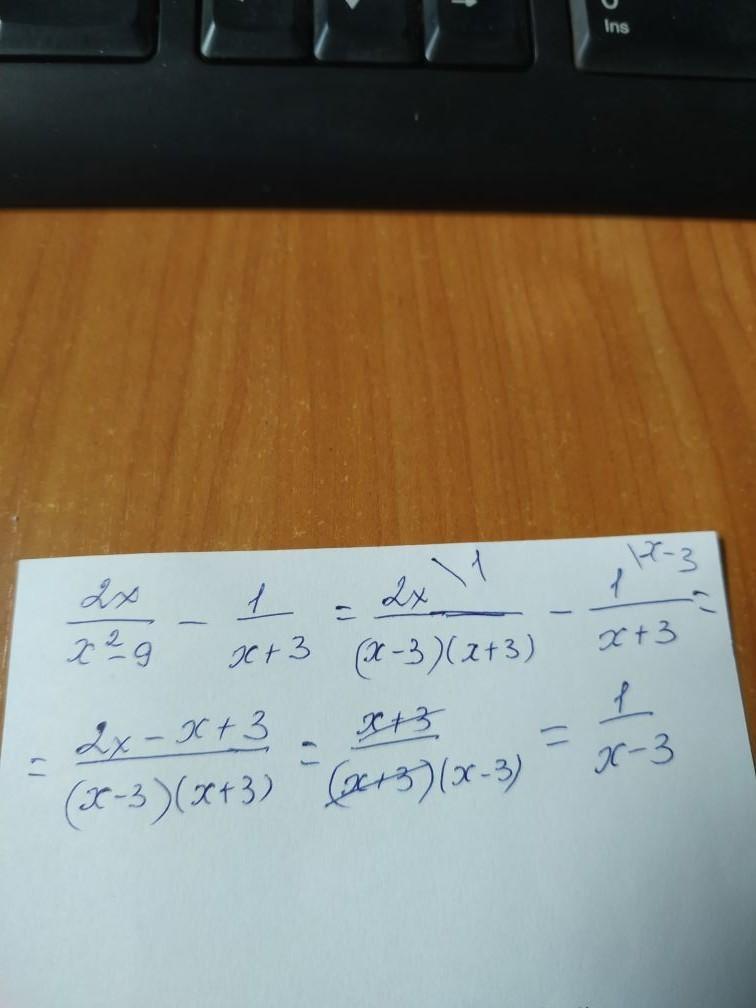 Ins
2x/(x²-9) - 1/(x+3) = 2x\1/((x-3)(x+3)) - 1\x-3/(x+3) =
= (2x-x+3)/((x-3)(x+3)) = (x+3)/((x+3)(x-3)) = 1/(x-3)